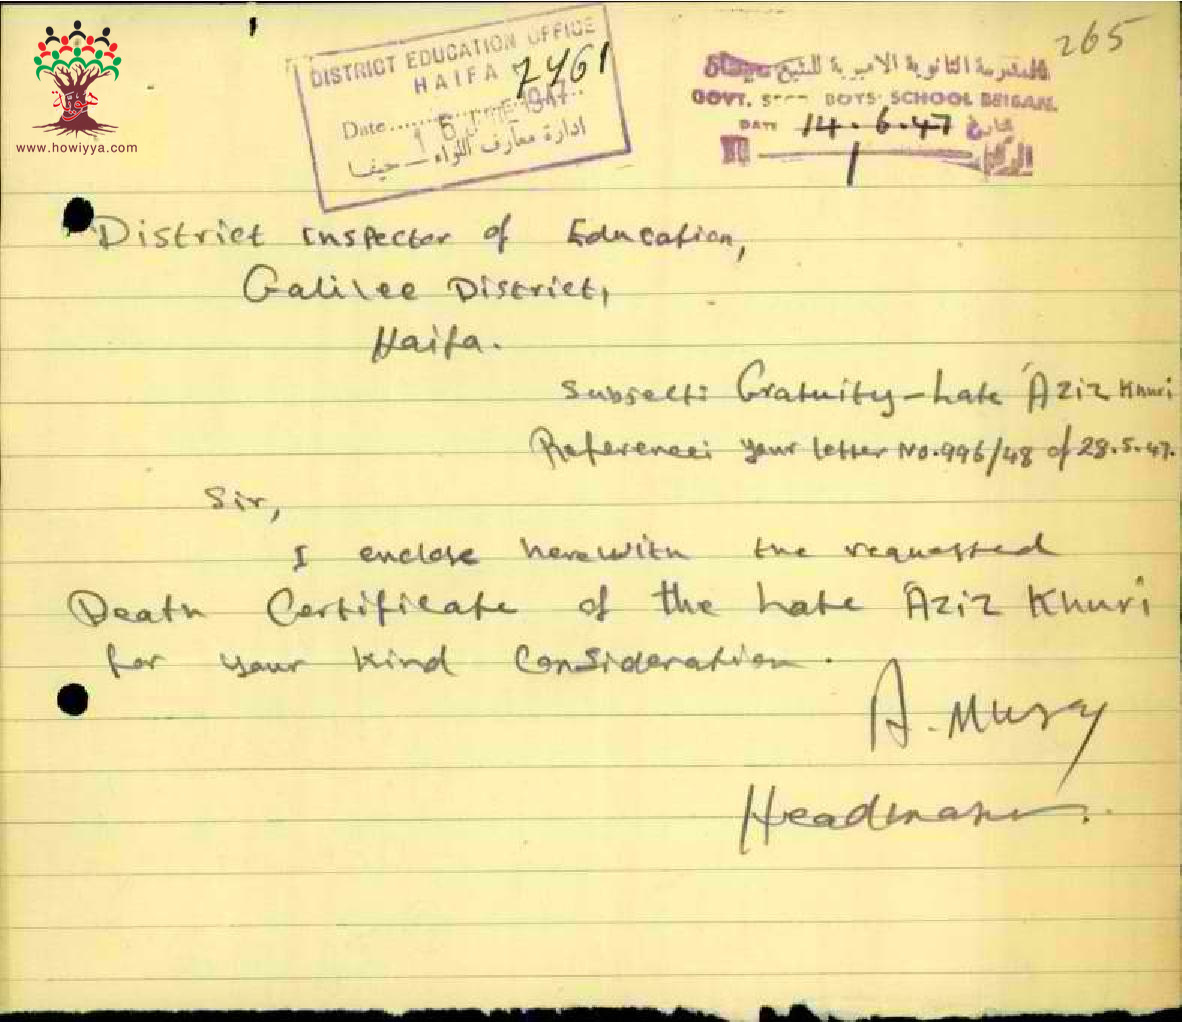 265
DISTRICT EDUCATION OFFICE
HAIFA 7461
Date
ادارة معارف اللواء — حيفا
المدرسة الثانوية الاميرية
GOVT. BOYS' SCHOOL BEISAN.
DATE 14.6.47 تاريخ
1
www.howiyya.com
District Inspector of Education,
Galilee District,
Haifa.
Subject: Gratuity - Late Aziz Khuri
Reference: Your letter No. 996/48 of 28.5.47.
Sir,
I enclose herewith the requested
Death Certificate of the Late Aziz Khuri
for your kind consideration.
A. Musa
Headmaster.